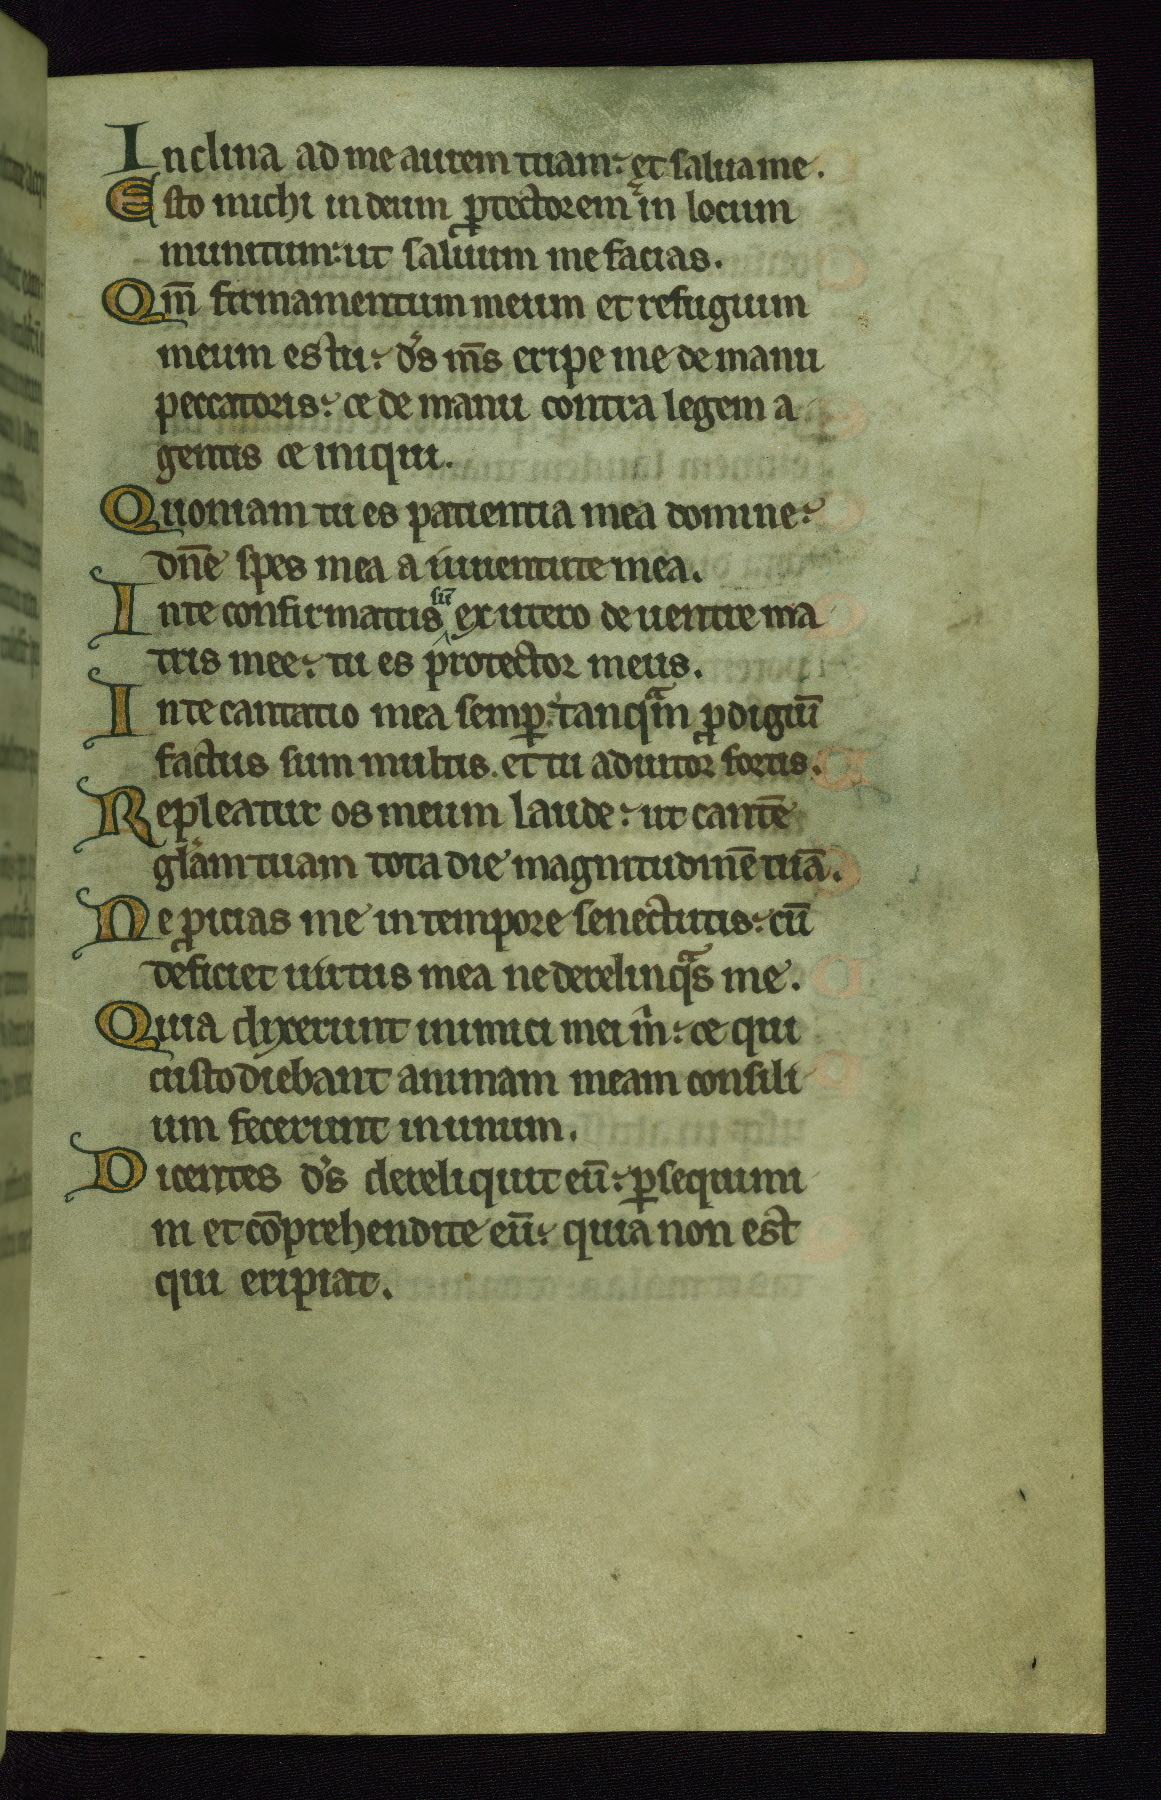 Inclina ad me aurem tuam: et salua me.
Esto michi in deum ꝓtectorem ⁊ in locum
munitum: ut saluum me facias.
Qm̄ firmamentum meum et refugium
meum es tu: d̾s m̄s eripe me de manu
peccatoris: ce de manu contra legem a
gentis ce iniqui.
Quoniam tu es patientia mea domine:
dn̄e spes mea a iuuentute mea.
In te confirmatus sū ex utero de uentre ma
tris mee: tu es protector meus.
In te cantatio mea semꝑ: tanqᵃm ꝓdigiū
factus sum multis. et tu adiutor fortis.
Repleatur os meum laude: ut cantē
gl̄am tuam tota die magnitudinē tuā.
Ne ꝓicias me in tempore senectutis: cū
deficiet uirtus mea ne derelinqᵃs me.
Quia dixerunt inimici mei mⁱ: ce qui
custodiebant animam meam consili
um fecerunt in unum.
Dicentes d̾s dereliquit eū: ꝑsequimi
ni et cōprehendite eū: quia non est
qui eripiat.